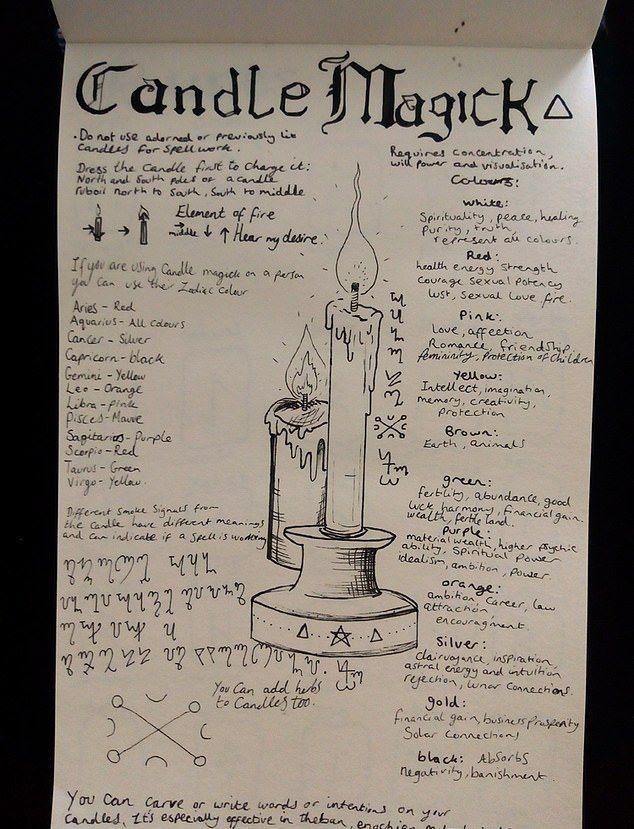 Candle Magick
• Do not use adorned or previously lit
Candles for Spellwork.
Dress the Candle first to Charge it:
North and South Poles of a candle
rub oil north to South, South to middle
Element of fire
middle ↓ ↑ Hear my desire.
If you are using Candle magick on a person
you can use their Zodiac Colour
Aries - Red
Aquarius - All colours
Cancer - Silver
Capricorn - black
Gemini - Yellow
Leo - Orange
Libra - pink
Pisces - Mauve
Sagitarios - Purple
Scorpio - Red
Taurus - Green
Virgo - Yellow.
Different Smoke Signals from
the Candle have different meanings
and can indicate if a Spell is working
You Can add herbs
to Candles too.
Requires Concentration,
will power and visualisation.
Colours:
White:
Spirituality, peace, healing
Purity, truth,
represent all colours.
Red:
health energy Strength
Courage Sexual Potency
Lust, Sexual Love, fire.
Pink:
Love, affection
Romance, friendship,
femininity, Protection of Children
Yellow:
Intellect, imagination,
memory, creativity,
Protection
Brown:
Earth, animals
green:
fertility, abundance, good
luck, harmony, financial gain.
wealth, fertile land.
Purple:
material wealth, higher Psychic
ability, Spiritual Power
idealism, ambition, Power.
orange:
ambition Career, law
attraction
encouragment.
Silver:
Clairvoyance, inspiration,
astral energy and intuition
rejection, lunar Connections.
gold:
financial gain, business prosperity
Solar Connections
black: Absorbs
negativity, banishment.
You Can Carve or write words or intentions on your
Candles, It's especially effective in theban, enochian